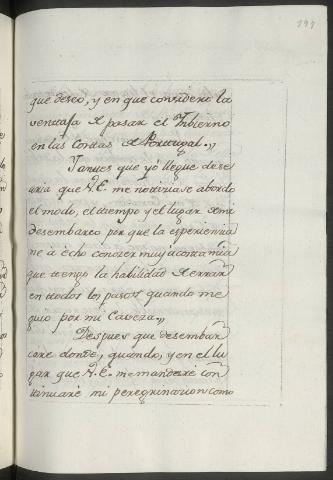 191
que deseo, y en que consideré la
ventaja de pasar el Imbierno
en las Costas de Portugal.,,
Y antes que yó llegue dese
aria que V.E. me noticiase abordo
el modo, el tiempo y el lugar de mi
desembarco por que la esperienzia
me á echo conozer muy á costa mia
que tengo la habilidad de errar
en todos los pasos quando me
guio por mi Caveza.,,
Despues que desembar
care donde, quando, y en el lu
gar que V.E. me mandare con
tinuaré mi peregrinacion como